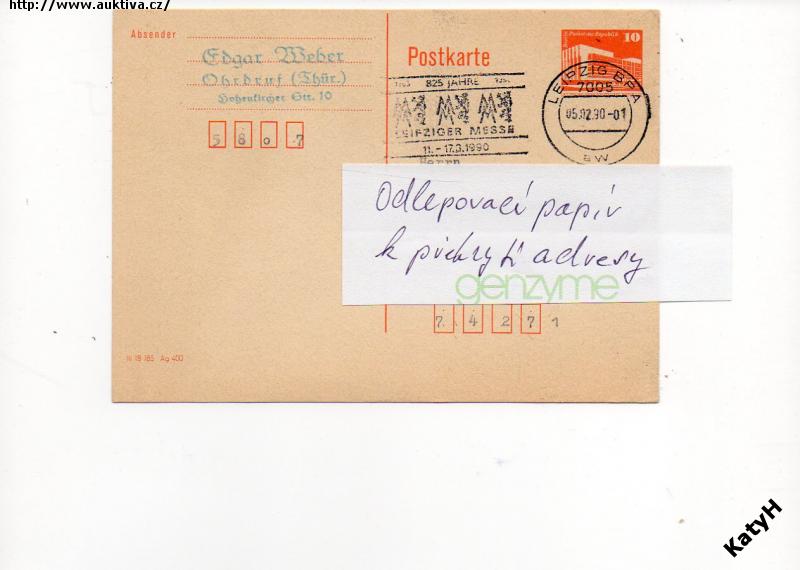 http://www.auktiva.cz/
Absender
Edgar Weber
Ohrdruf (Thür.)
Hohenkircher Str. 10
5 8 0 7
Postkarte
825 JAHRE
LEIPZIGER MESSE
11.-17.3.1990
Palast der Republik
10
LEIPZIG BPA
7005
05.02.90-01
aw
Herrn
Odlepovací papír
k překrytí adresy
genzyme
7 4 2 7 1
III 18 185 Ag 400
KatyH